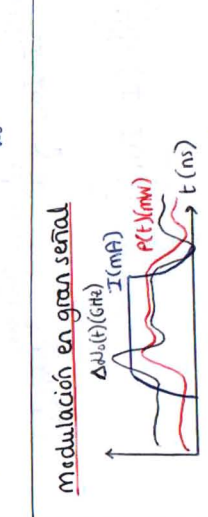 Modulación en gran señal
Δν₀(t)(GHz)
I(mA)
P(t)(mW)
t(ns)